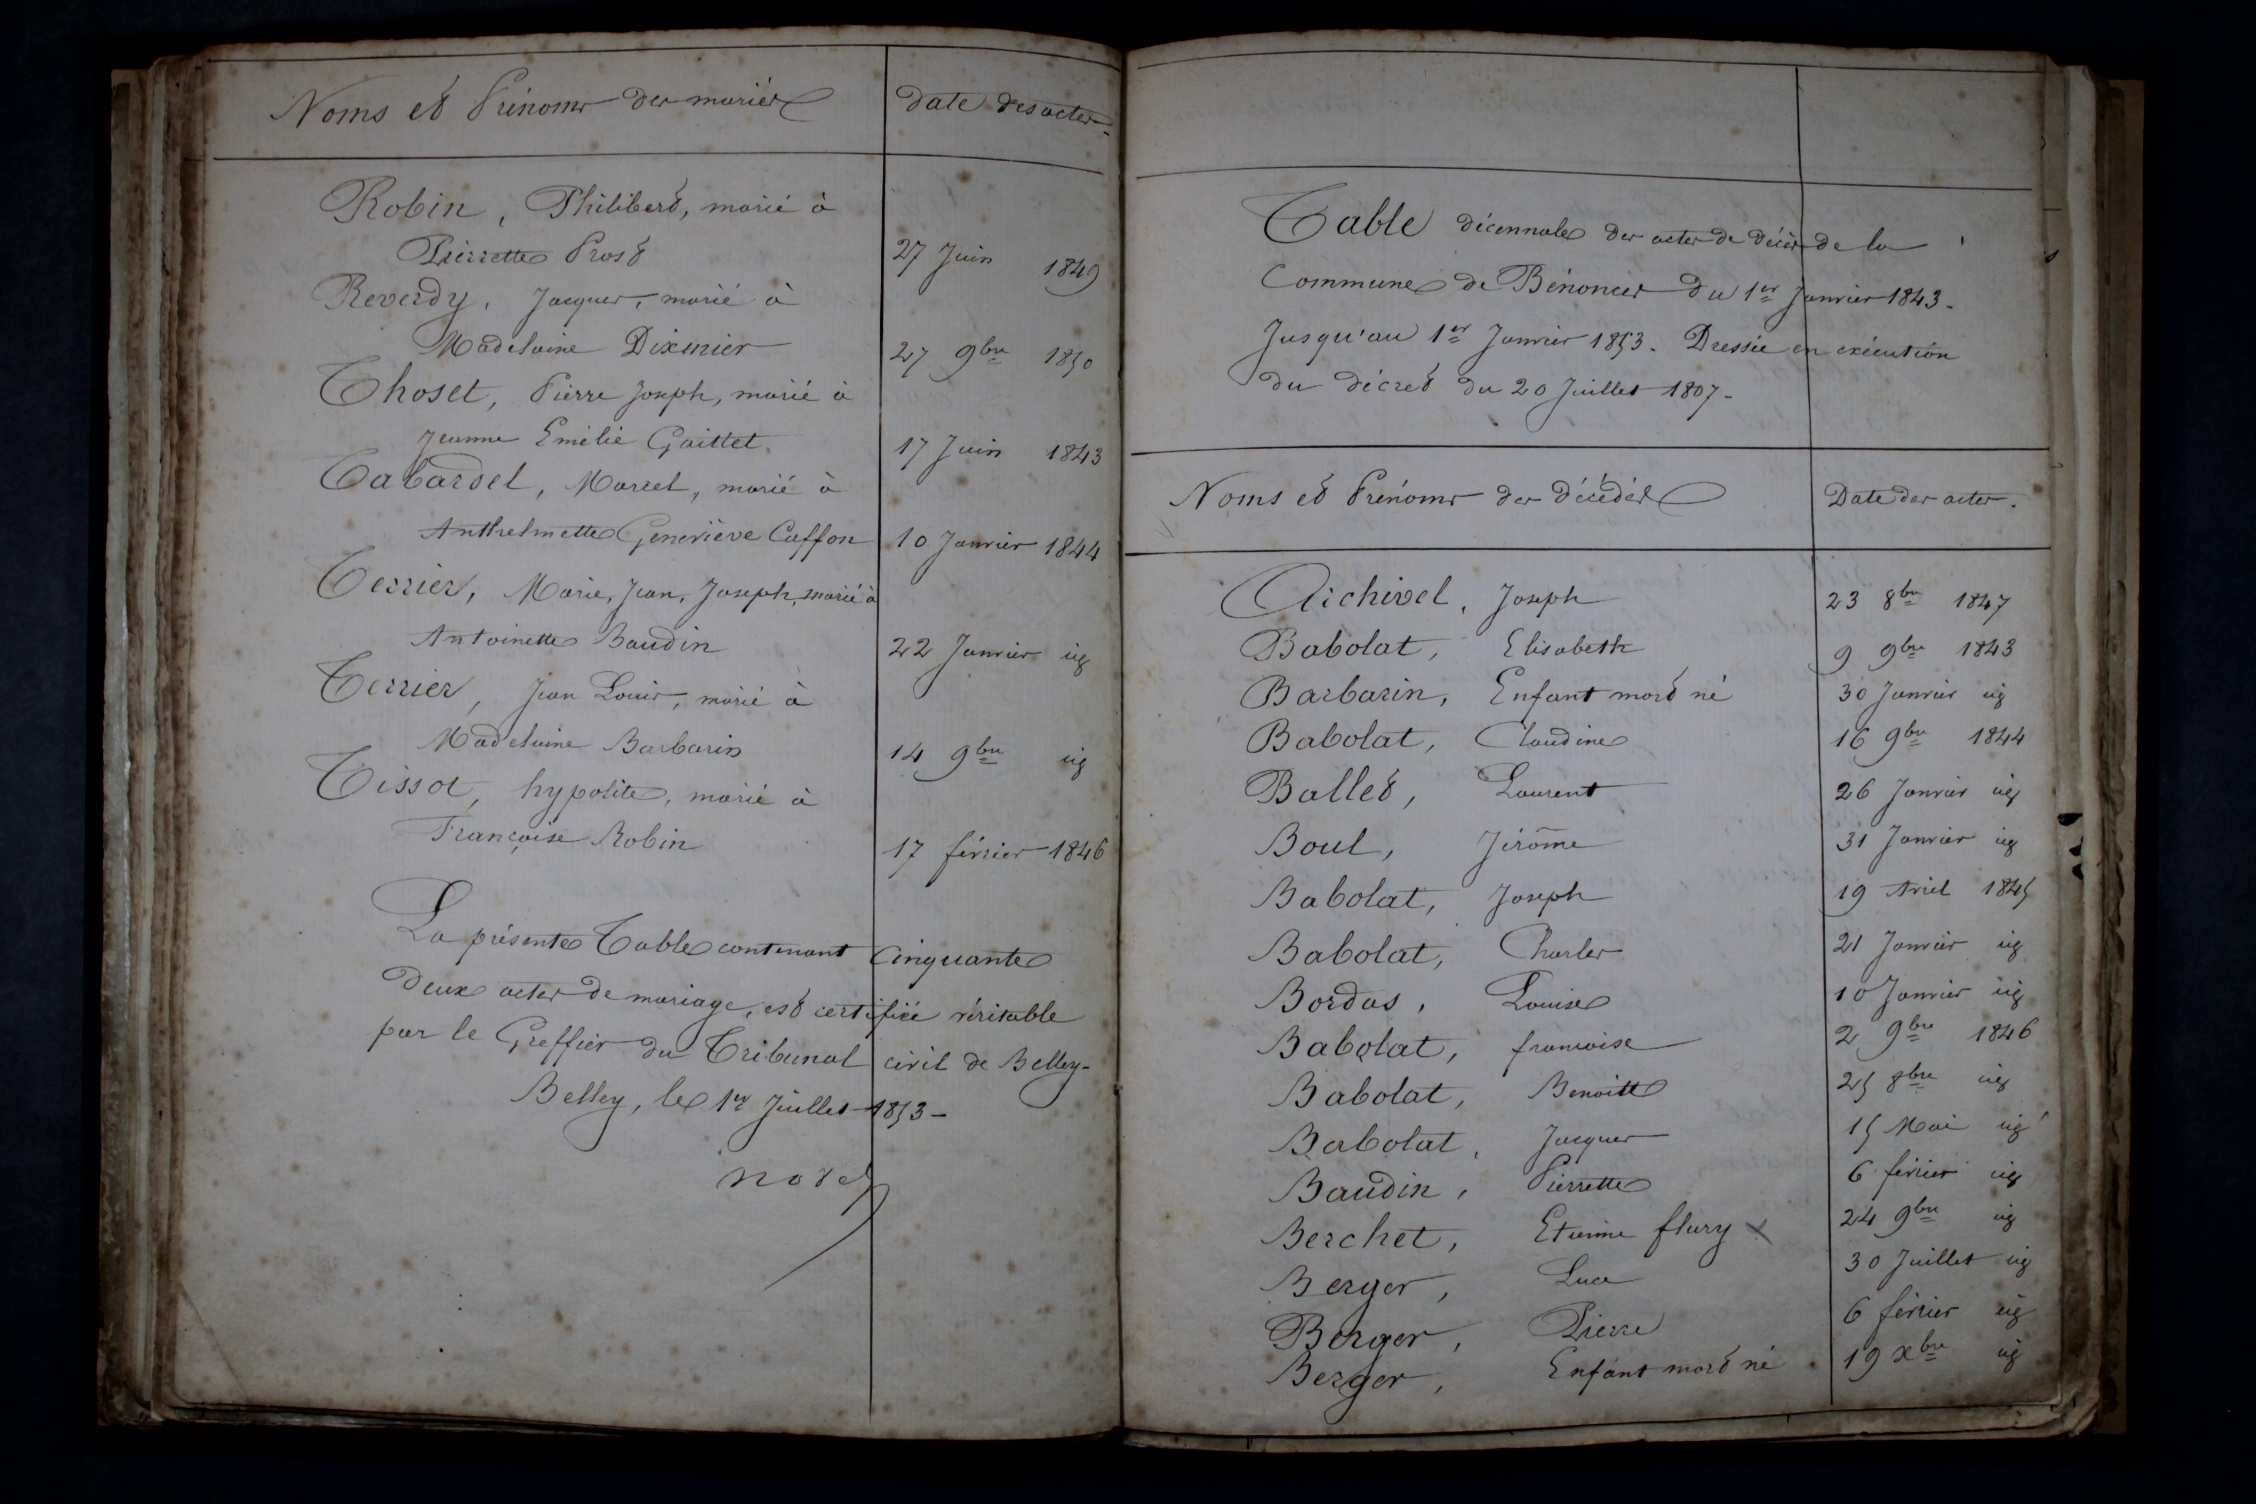 Noms et Prénoms des mariés
Date des actes
Robin, Philibert, marié à
Pierrette Prost
27 Juin 1849
Reverdy, Jacques, marié à
Madelaine Dixmier
27 9bre 1850
Thoset, Pierre Joseph, marié à
Jeanne Emélie Goittet
17 Juin 1843
Tabardel, Marcel, marié à
Anthelmette Geneviève Caffon
10 Janvier 1844
Terrier, Marie, Jean, Joseph, marié à
Antoinette Baudin
22 Janvier id
Terrier, Jean Louis, marié à
Madelaine Barbarin
14 9bre id
Tissot, hypolite, marié à
Françoise Robin
17 février 1846
La présente Table contenant Cinquante
deux actes de mariage, est certifiée véritable
par le Greffier du Tribunal civil de Belley-
Belley, le 1er Juillet 1853-
Table décennale des actes de décès de la
Commune de Bénonces du 1er Janvier 1843-
Jusqu'au 1er Janvier 1853. Dressée en exécution
du décret du 20 Juillet 1807-
Noms et Prénoms des décédés
Date des actes.
Aichivel, Joseph 23 8bre 1847
Babolat, Elisabeth 9 9bre 1843
Barbarin, Enfant mort né 30 Janvier id
Babolat, Claudine 16 9bre 1844
Ballet, Laurent 26 Janvier id
Boul, Jérôme 31 Janvier id
Babolat, Joseph 19 Avril 1845
Babolat, Charles 21 Janvier id
Bordas, Louise 10 Janvier id
Babolat, francoise 2 9bre 1846
Babolat, Benoitte 25 8bre id
Babolat, Jacques 15 Mai id
Baudin, Pierrette 6 février id
Berchet, Etienne flury 24 9bre id
Berger, Luce 30 Juillet id
Berger, Pierre 6 février id
Berger, Enfant mort né 19 xbre id